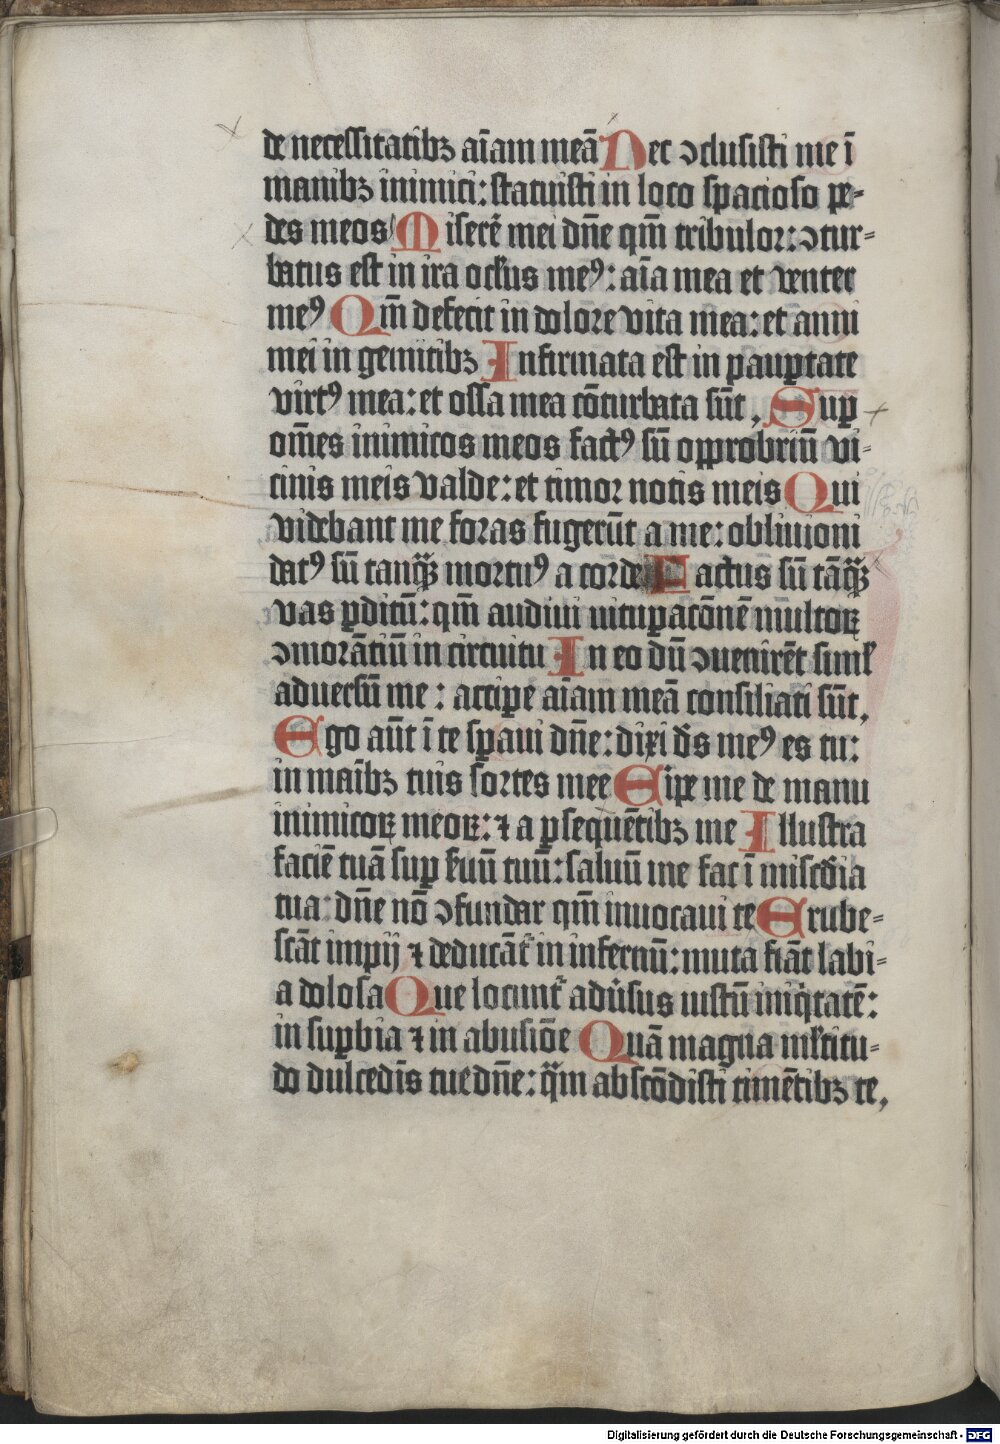 de necessitatibꝫ aīam meā Nec ↄclusisti me ī
manibꝫ inimici: statuisti in loco spacioso pe-
des meos Miserē mei dn̄e qm̄ tribulor: ↄtur-
batus est in ira oclus meꝰ: aīa mea et venter
meꝰ Qm̄ defecit in dolore vita mea: et anni
mei in gemitibꝫ Infirmata est in paup̄tate
virtꝰ mea: et ossa mea cōturbata sūt, Sup̄
om̄es inimicos meos factꝰ sū opprobriū vi-
cinis meis valde: et timor notis meis Qui
videbant me foras fugerūt a me: obliuioni
datꝰ sū tanqꝫ mortuꝰ a corde Factus sū tāqꝫ
vas ꝑditū: qm̄ audiui uitupacōnē multoꝝ
ↄmorātiū in circuitu In eo dū ↄuenirēt siml̄
aduersū me: accipe aīam meā consiliati sūt,
Ego aūt ī te sꝑaui dn̄e: dixi ds̄ meꝰ es tu:
in maībꝫ tuis sortes mee Eipe me de manu
inimicoꝝ meoꝝ: ⁊ a ꝑsequētibꝫ me Illustra
faciē tuā suꝑ ẜuū tuū: saluū me fac ī misc̄dia
tua: dn̄e nō ↄfundar qm̄ inuocaui te Erube-
scāt impij ⁊ deducāt᷑ in infernū: muta fiāt labi-
a dolosa Que locunt᷑ adūsus iustū iniq̄tatē:
in suꝑbia ⁊ in abusiōe Quā magna ml̄titu-
do dulcedīs tue dn̄e: qm̄ abscōdisti timētibꝫ te,
Digitalisierung gefördert durch die Deutsche Forschungsgemeinschaft - DFG